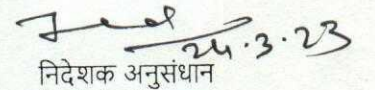 24.3.23
निदेशक अनुसंधान